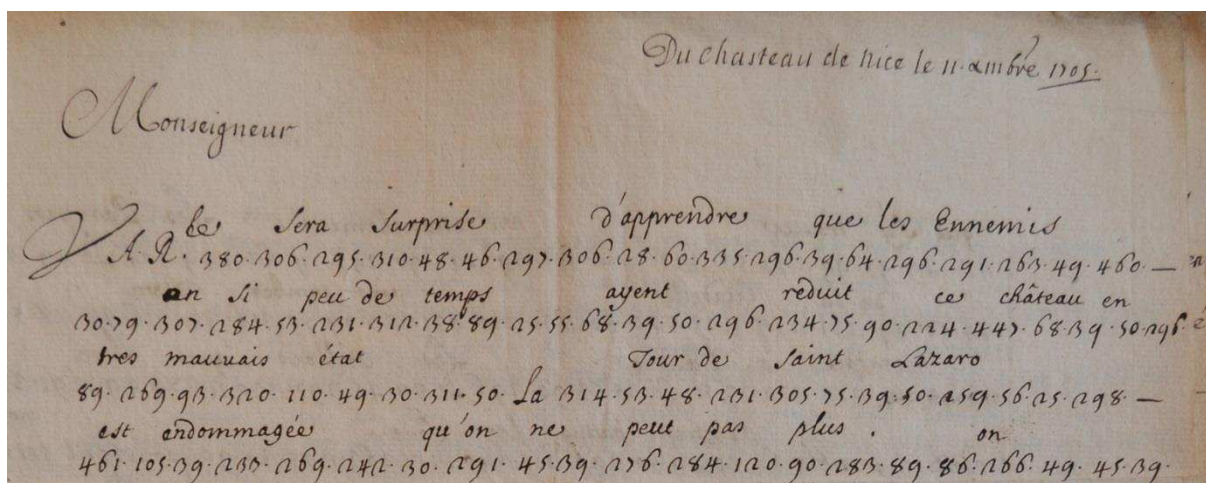 Du Chasteau de Nice le 11. xmbre 1705.
Monseigneur
le sera surprise d'apprendre que les Ennemis
V. A. R. 380. 306. 295. 310. 48. 46. 297. 306. 28. 60. 335. 296. 39. 64. 296. 291. 263. 49. 460. —
en si peu de temps ayent reduit ce château en
30. 79. 307. 284. 53. 231. 312. 38. 89. 25. 55. 68. 39. 50. 296. 234. 75. 90. 224. 447. 68. 39. 50. 296.
tres mauvais état Tour de saint Lazaro
89. 269. 93. 320. 110. 49. 30. 311. 50. La 314. 53. 48. 231. 305. 75. 39. 50. 259. 56. 25. 298. —
est endommagée qu'on ne peut pas plus. on
461. 105. 39. 237. 269. 242. 30. 291. 45. 39. 276. 284. 120. 90. 283. 89. 86. 266. 49. 45. 39.